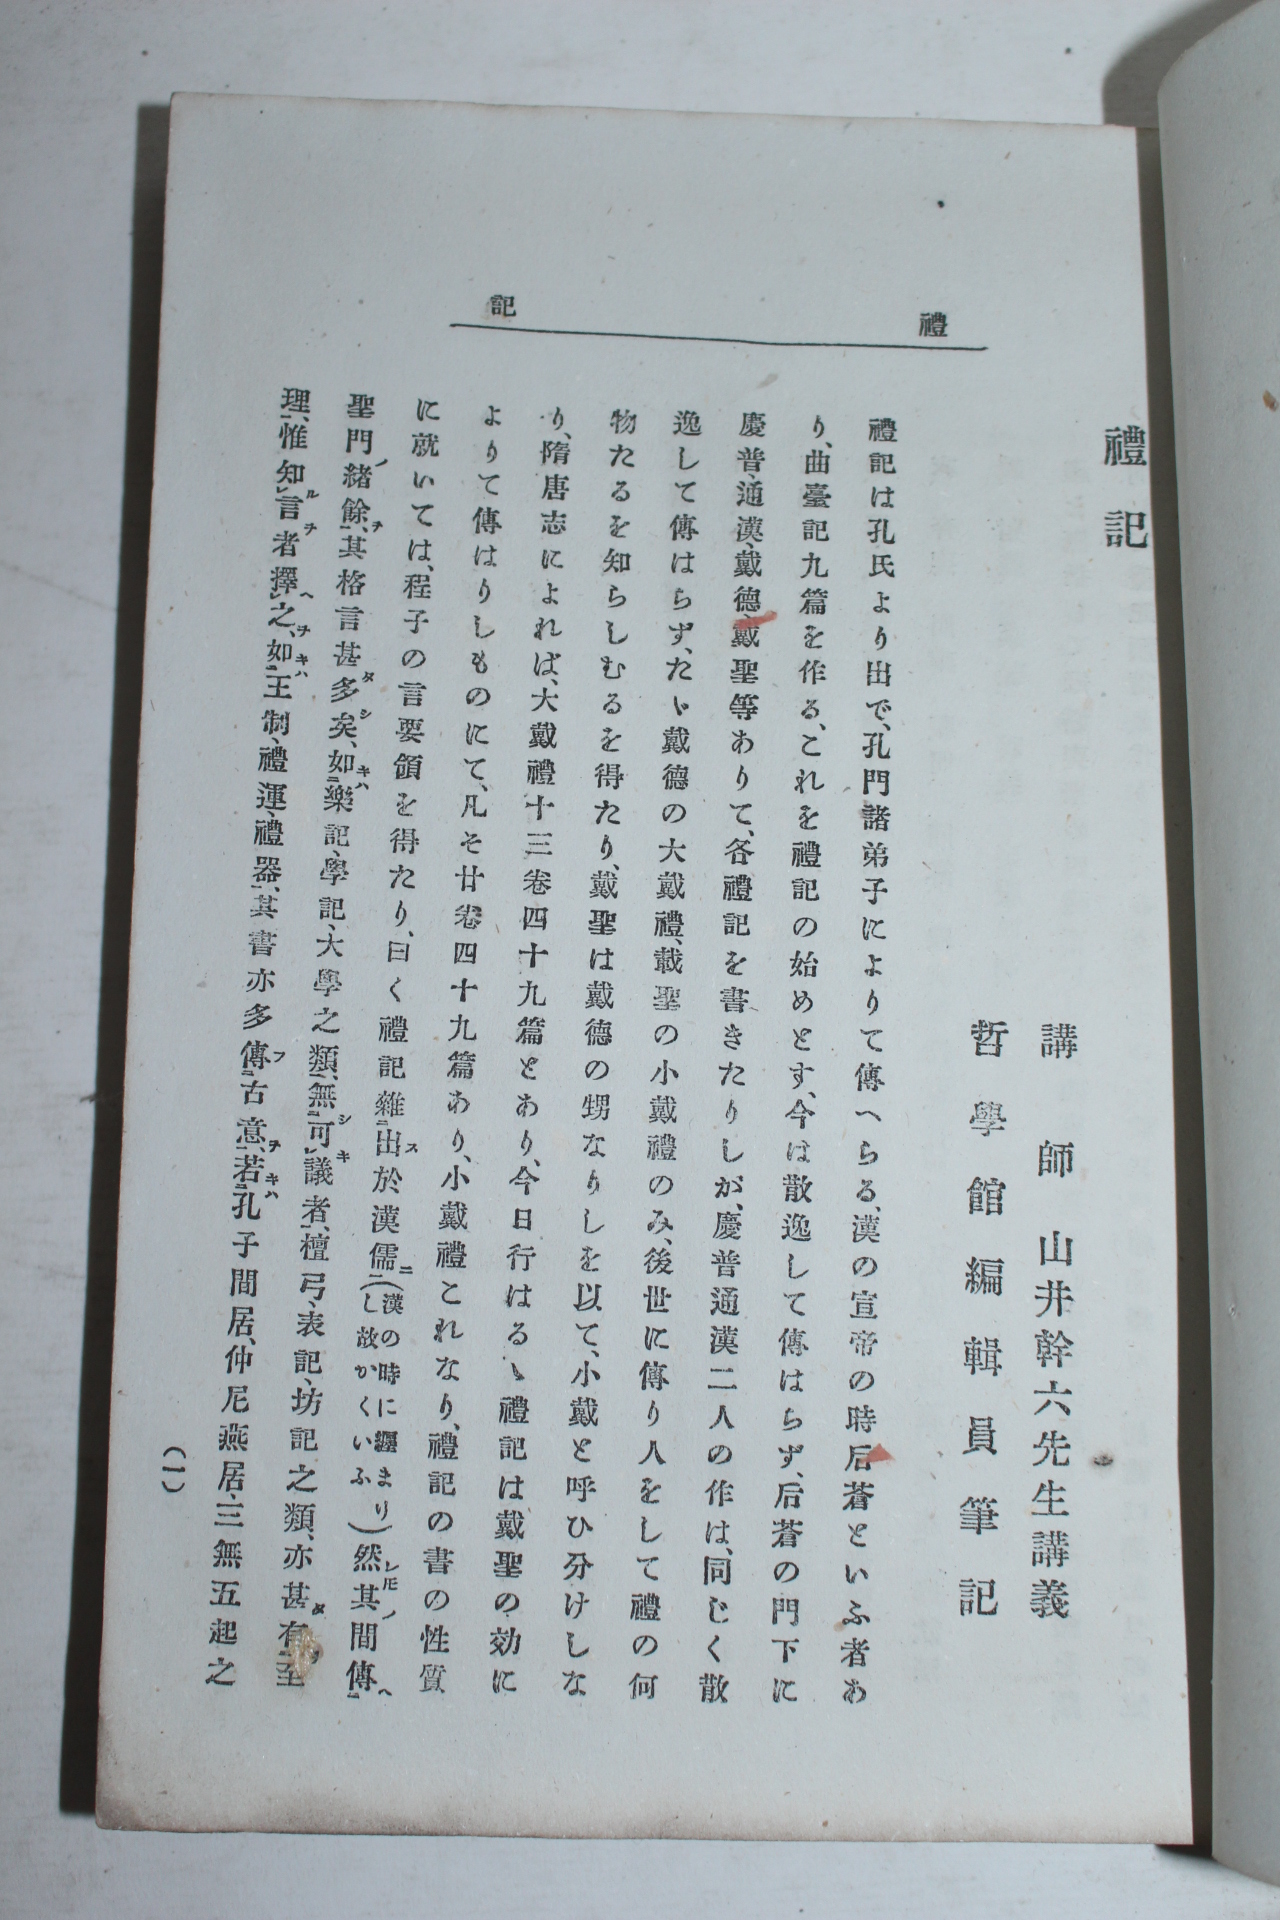 禮記
禮記
講師 山井幹六先生講義
哲學館編輯員筆記
禮記は孔氏より出で、孔門諸弟子によりて傳へらる、漢の宣帝の時后蒼といふ者あ
り、曲臺記九篇を作る、これを禮記の始めとす、今は散逸して傳はらず、后蒼の門下に
慶普、通漢、戴德、戴聖等ありて、各禮記を書きたりしが、慶普通漢二人の作は、同じく散
逸して傳はらず、たゞ戴德の大戴禮、戴聖の小戴禮のみ、後世に傳り人をして禮の何
物たるを知らしむるを得たり、戴聖は戴德の甥なりしを以て、小戴と呼ひ分けしな
り、隋唐志によれば、大戴禮十三卷四十九篇とあり、今日行はるゝ禮記は戴聖の効に
よりて傳はりしものにて、凡そ廿卷四十九篇あり、小戴禮これなり、禮記の書の性質
に就いては、程子の言要領を得たり、曰く禮記雜出ス於漢儒ニ(漢の時に纒まりし故かくいふ)然レ𪜈其ノ間傳ヘ
聖門ノ緖餘ヲ、其格言甚タ多シ矣、如キハ樂記、學記、大學之類、無シ可キ議者、檀弓、表記、坊記之類、亦甚タ有至
理、惟知ル言ヲ者擇ヘ之ヲ、如キハ王制、禮運、禮器、其書亦多傳フ古意ヲ、若キハ孔子間居、仲尼燕居、三無五起之
(一)